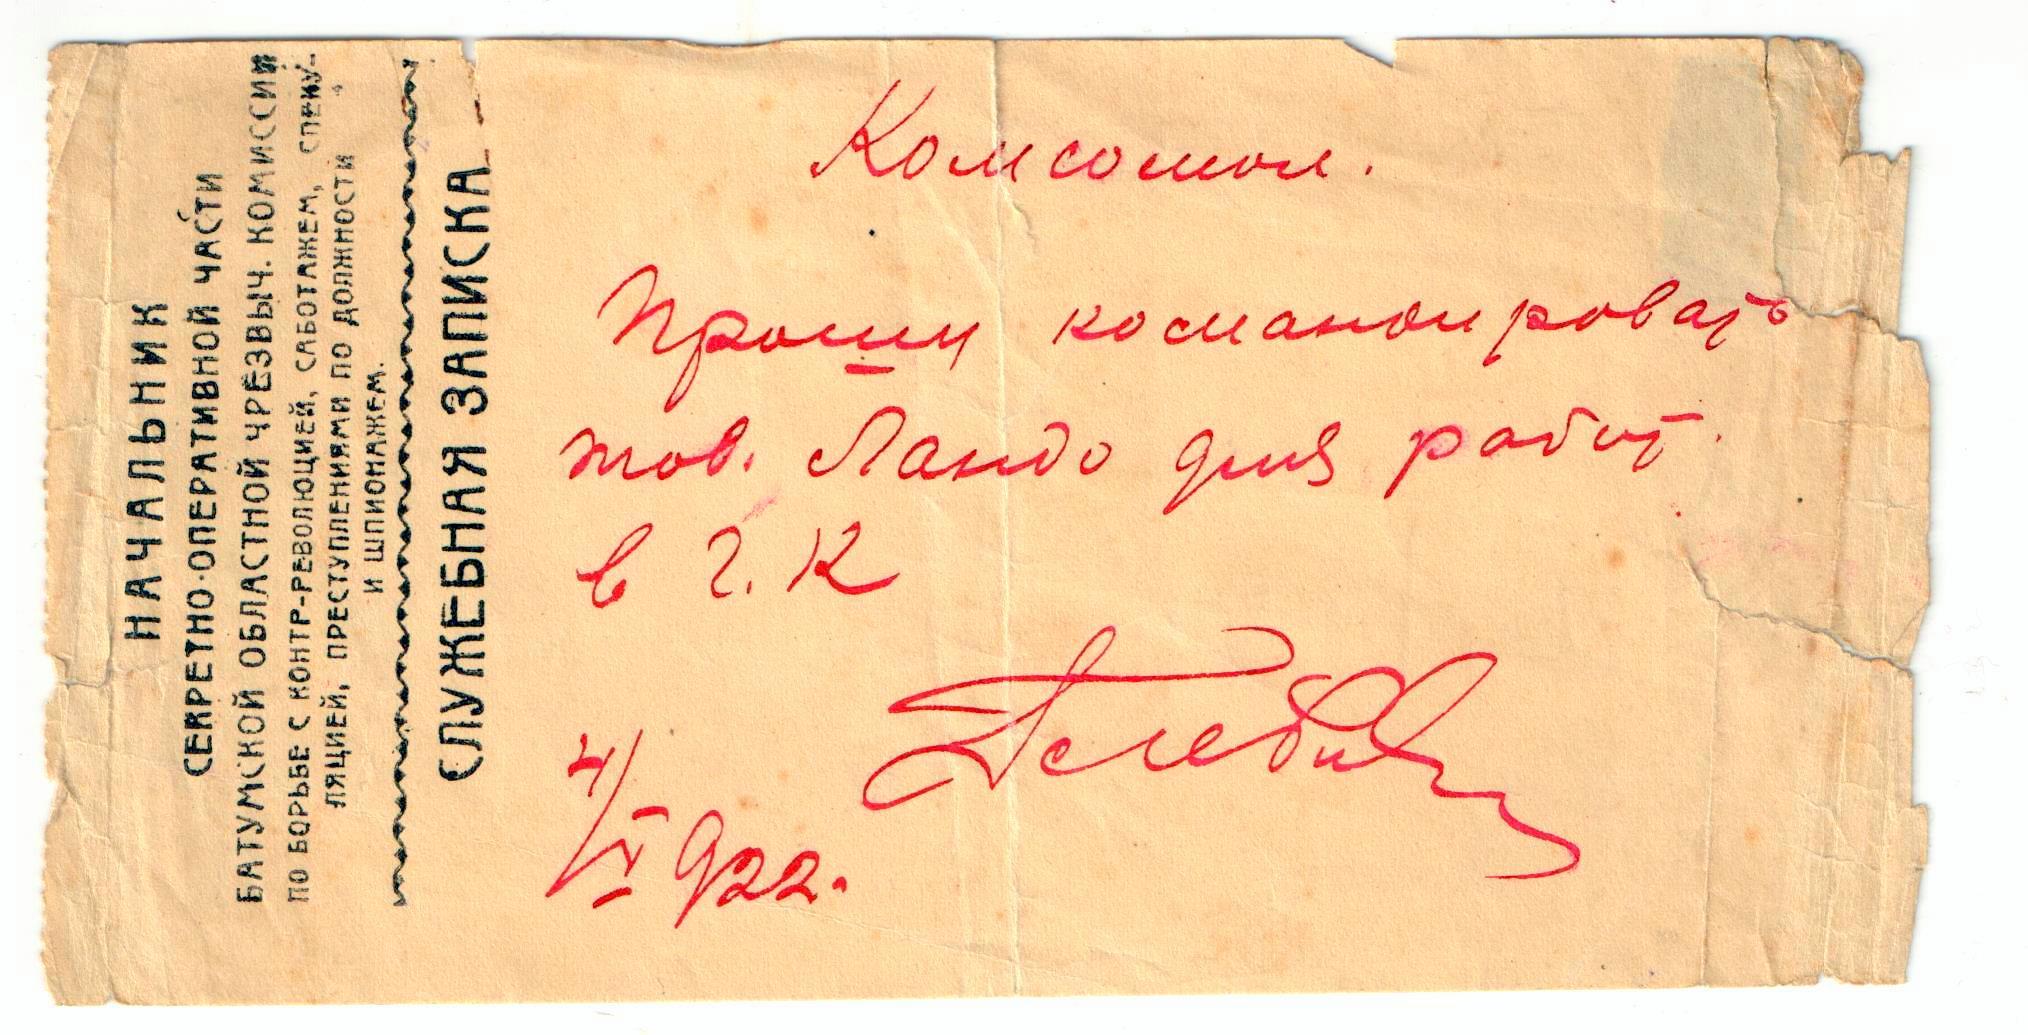 НАЧАЛЬНИК
СЕКРЕТНО-ОПЕРАТИВНОЙ ЧАСТИ
БАТУМСКОЙ ОБЛАСТНОЙ ЧРЕЗВЫЧ. КОМИССИИ
ПО БОРЬБЕ С КОНТР-РЕВОЛЮЦИЕЙ, САБОТАЖЕМ, СПЕКУ-
ЛЯЦИЕЙ, ПРЕСТУПЛЕНИЯМИ ПО ДОЛЖНОСТИ
И ШПИОНАЖЕМ.
СЛУЖЕБНАЯ ЗАПИСКА
Комсомол.
Прошу командировать
тов. Ландо для работ.
в Ч. К
922.